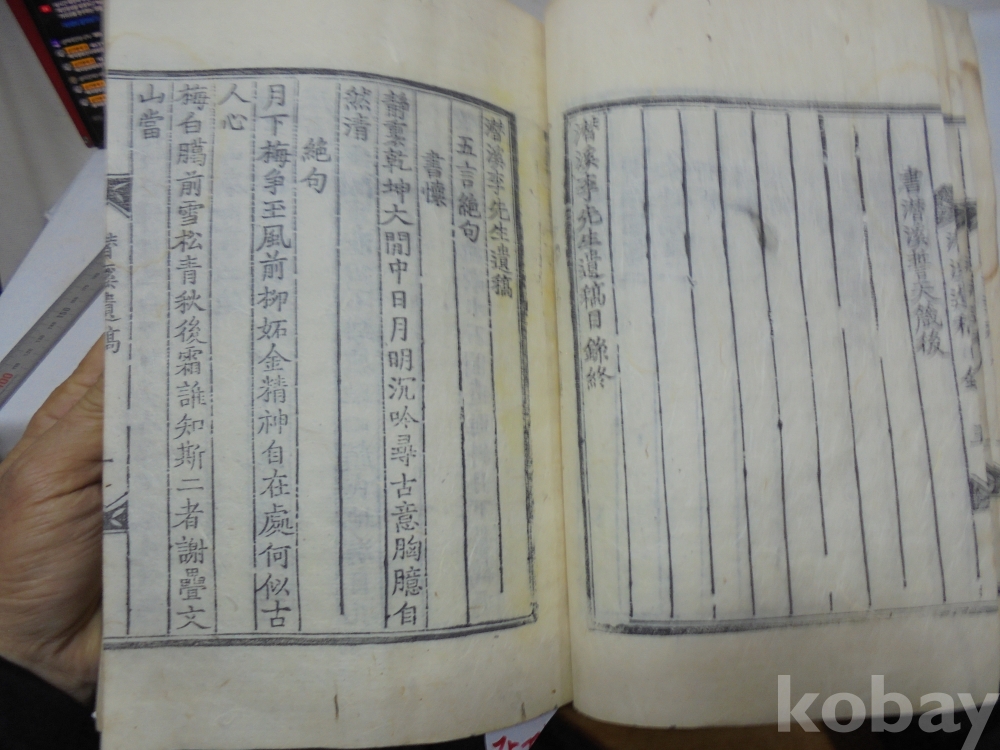 書潛溪誓天箴後
潛溪李先生遺稿目錄終
潛溪李先生遺稿
五言絶句
書懷
靜裏乾坤大閒中日月明沉吟尋古意胸臆自
然清
絶句
月下梅爭玉風前柳妬金精神自在處何似古
人心
梅白臈前雪松青秋後霜誰知斯二者謝疊文
山當
潛溪遺稿
kobay